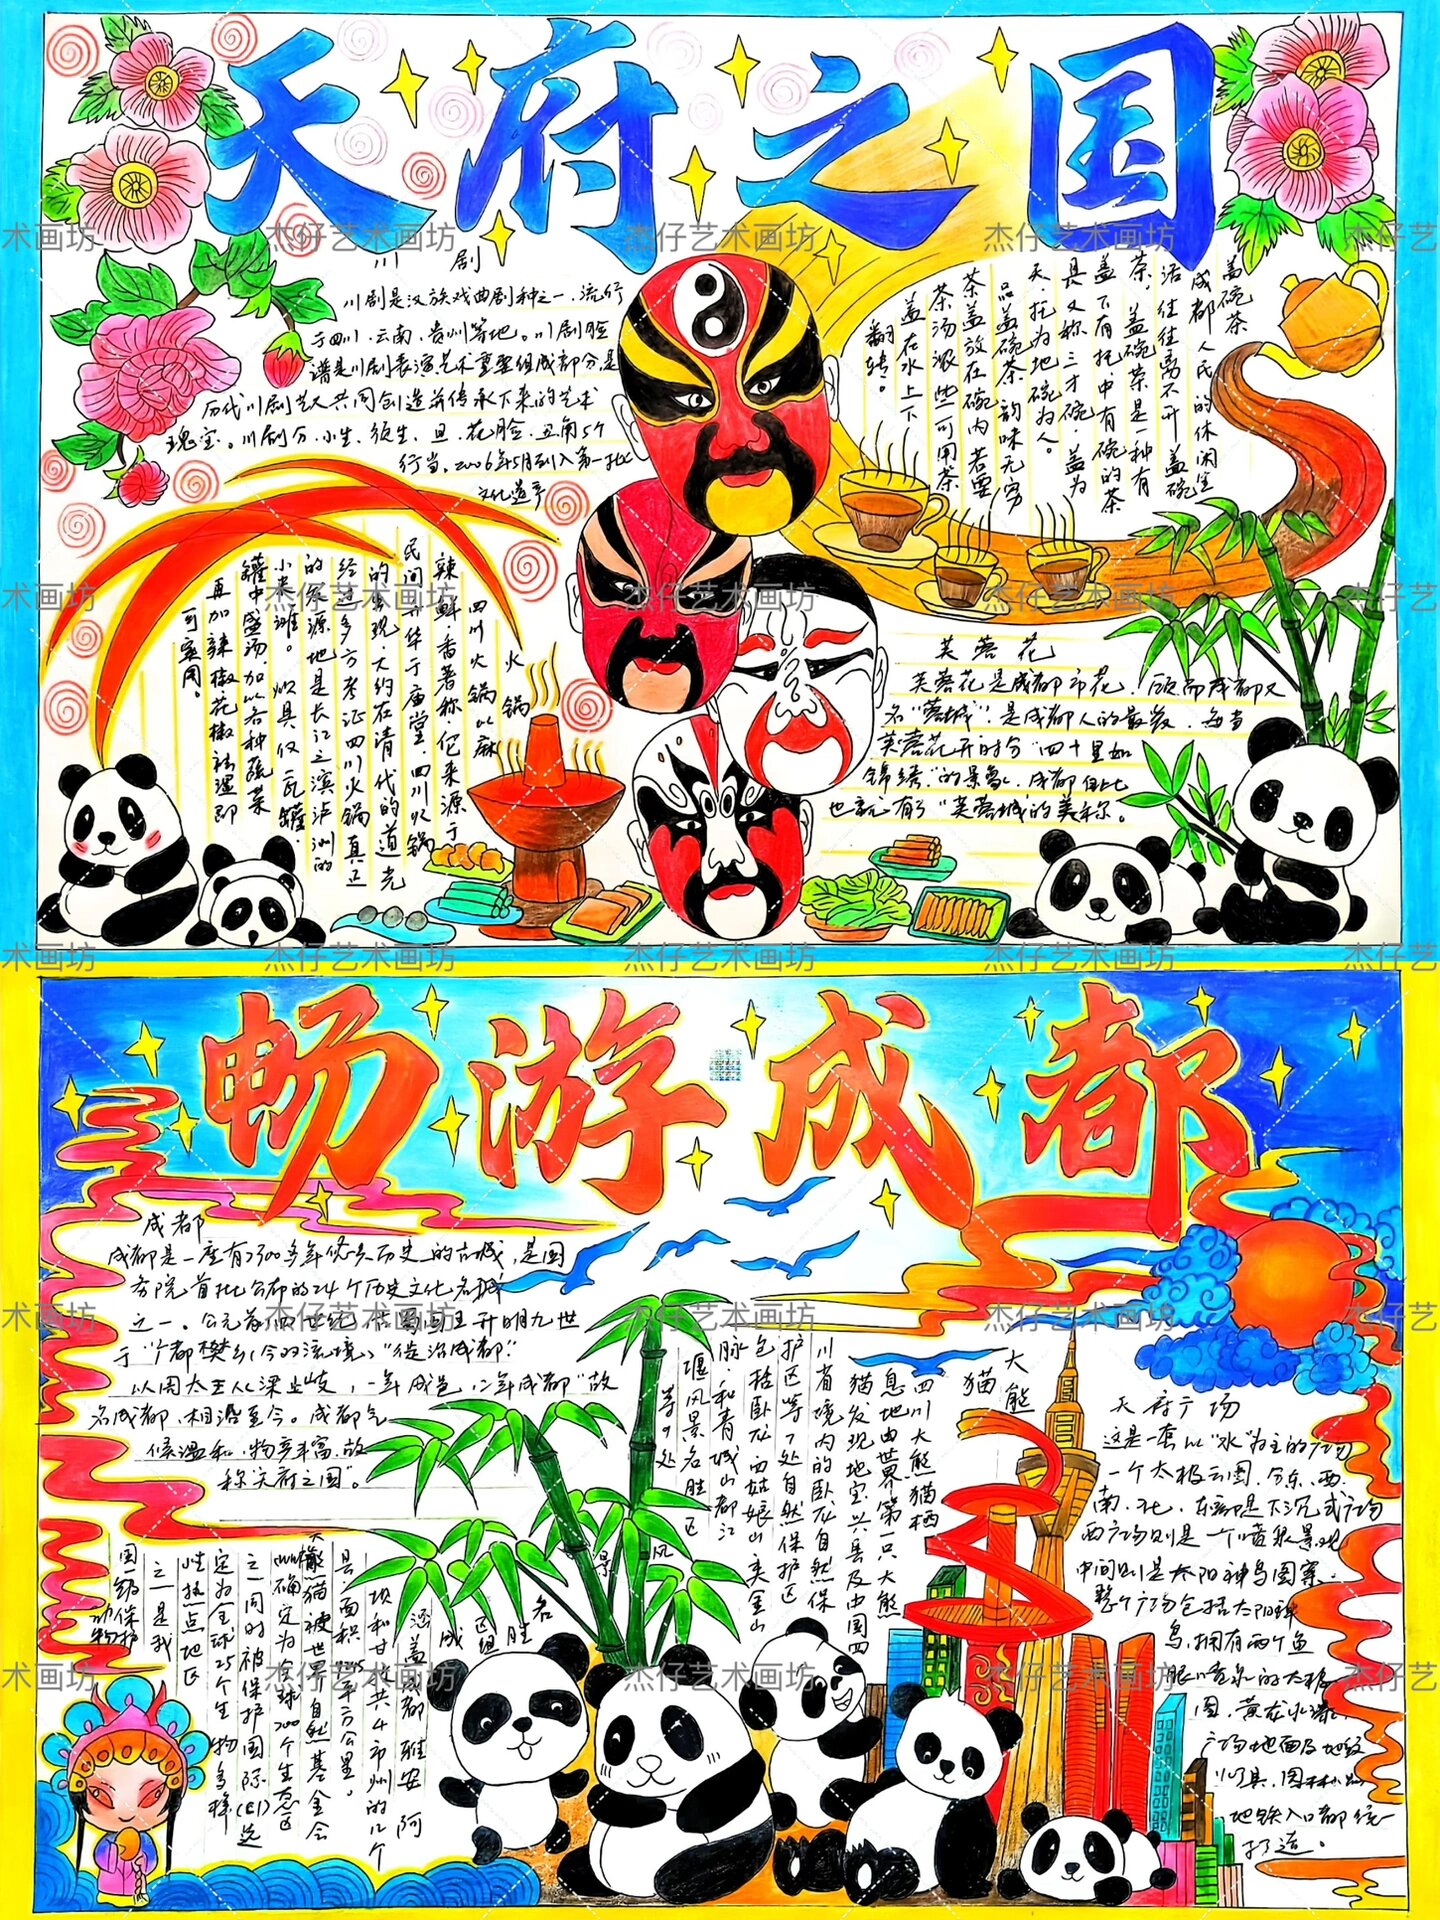 天府之国
川剧
川剧是汉族戏曲剧种之一、流行
于四川、云南、贵州等地。川剧脸
谱是川剧表演艺术重要组成部分,是
历代川剧艺人共同创造并传承下来的艺术
瑰宝。川剧分、小生、须生、旦、花脸、丑角5个
行当。2006年5月列入第一批
文化遗产
盖碗茶
成都人民的休闲生
活往往离不开盖碗
茶,盖碗茶是一种有
盖下有托,中有碗的茶
具又称三才碗,盖为
天、托为地碗为人。
品盖碗茶、韵味无穷
茶盖放在碗内若要
茶汤浓些可用茶
盖在水上下
翻转。
火锅
四川火锅以麻
辣鲜香著称,它来源于
民间升华于庙堂,四川火锅
的出现,大约在清代的道光
经过多方考证四川火锅真正
的发源地是长江之滨泸州的
小米滩。炊具仅一瓦罐,
罐中盛汤,加以各种蔬菜
再加辣椒花椒祛湿即
可食用。
芙蓉花
芙蓉花是成都市花,
名"蓉城",是成都人的最爱,每当
芙蓉花开时分"四十里如
锦绣"的景象,成都自此
也就有了"芙蓉城的美称。
畅游成都
成都
成都是一座有2300多年悠久历史的古城,是国
务院首批公布的24个历史文化名城
之一。公元前四世纪,古蜀国王开明九世
于"广都樊乡(今的流境)"徙治成都."
以周太王从梁止岐,一年成邑,二年成都"故
名成都,相沿至今。成都气
候温和,物产丰富,故
称"天府之国"。
大熊猫
四川大熊猫栖
息地由世界第一只大熊
猫发现地宝兴县及中国四
川省境内的卧龙自然保
护区等7处自然保护区
包括卧龙四姑娘山夹金山
脉,和青城山都江
堰风景名胜区
等9处
风景
名胜区组成
涵盖成都雅安阿
坝和甘孜共4市州的12个
县,面积9245平方公里。
大熊猫被世界自然基金会
(WWF)确定为全球200个生态区
之一同时被保护国际(CI)选
定为全球25个生物多样
性热点地区
之一是我
国一级保
护动物
天府广场
这是一套以"水"为主的广场
一个太极云图,分东、西
南、北,东部是下沉式广场
西广场则是一个喷泉景观
中间则是太阳神鸟图案.
整个广场包括太阳神
鸟,拥有两个鱼
眼喷泉的太极
图,黄龙水瀑,
广场地面及地毯
地铁入口都统一
打造。
杰仔艺术画坊